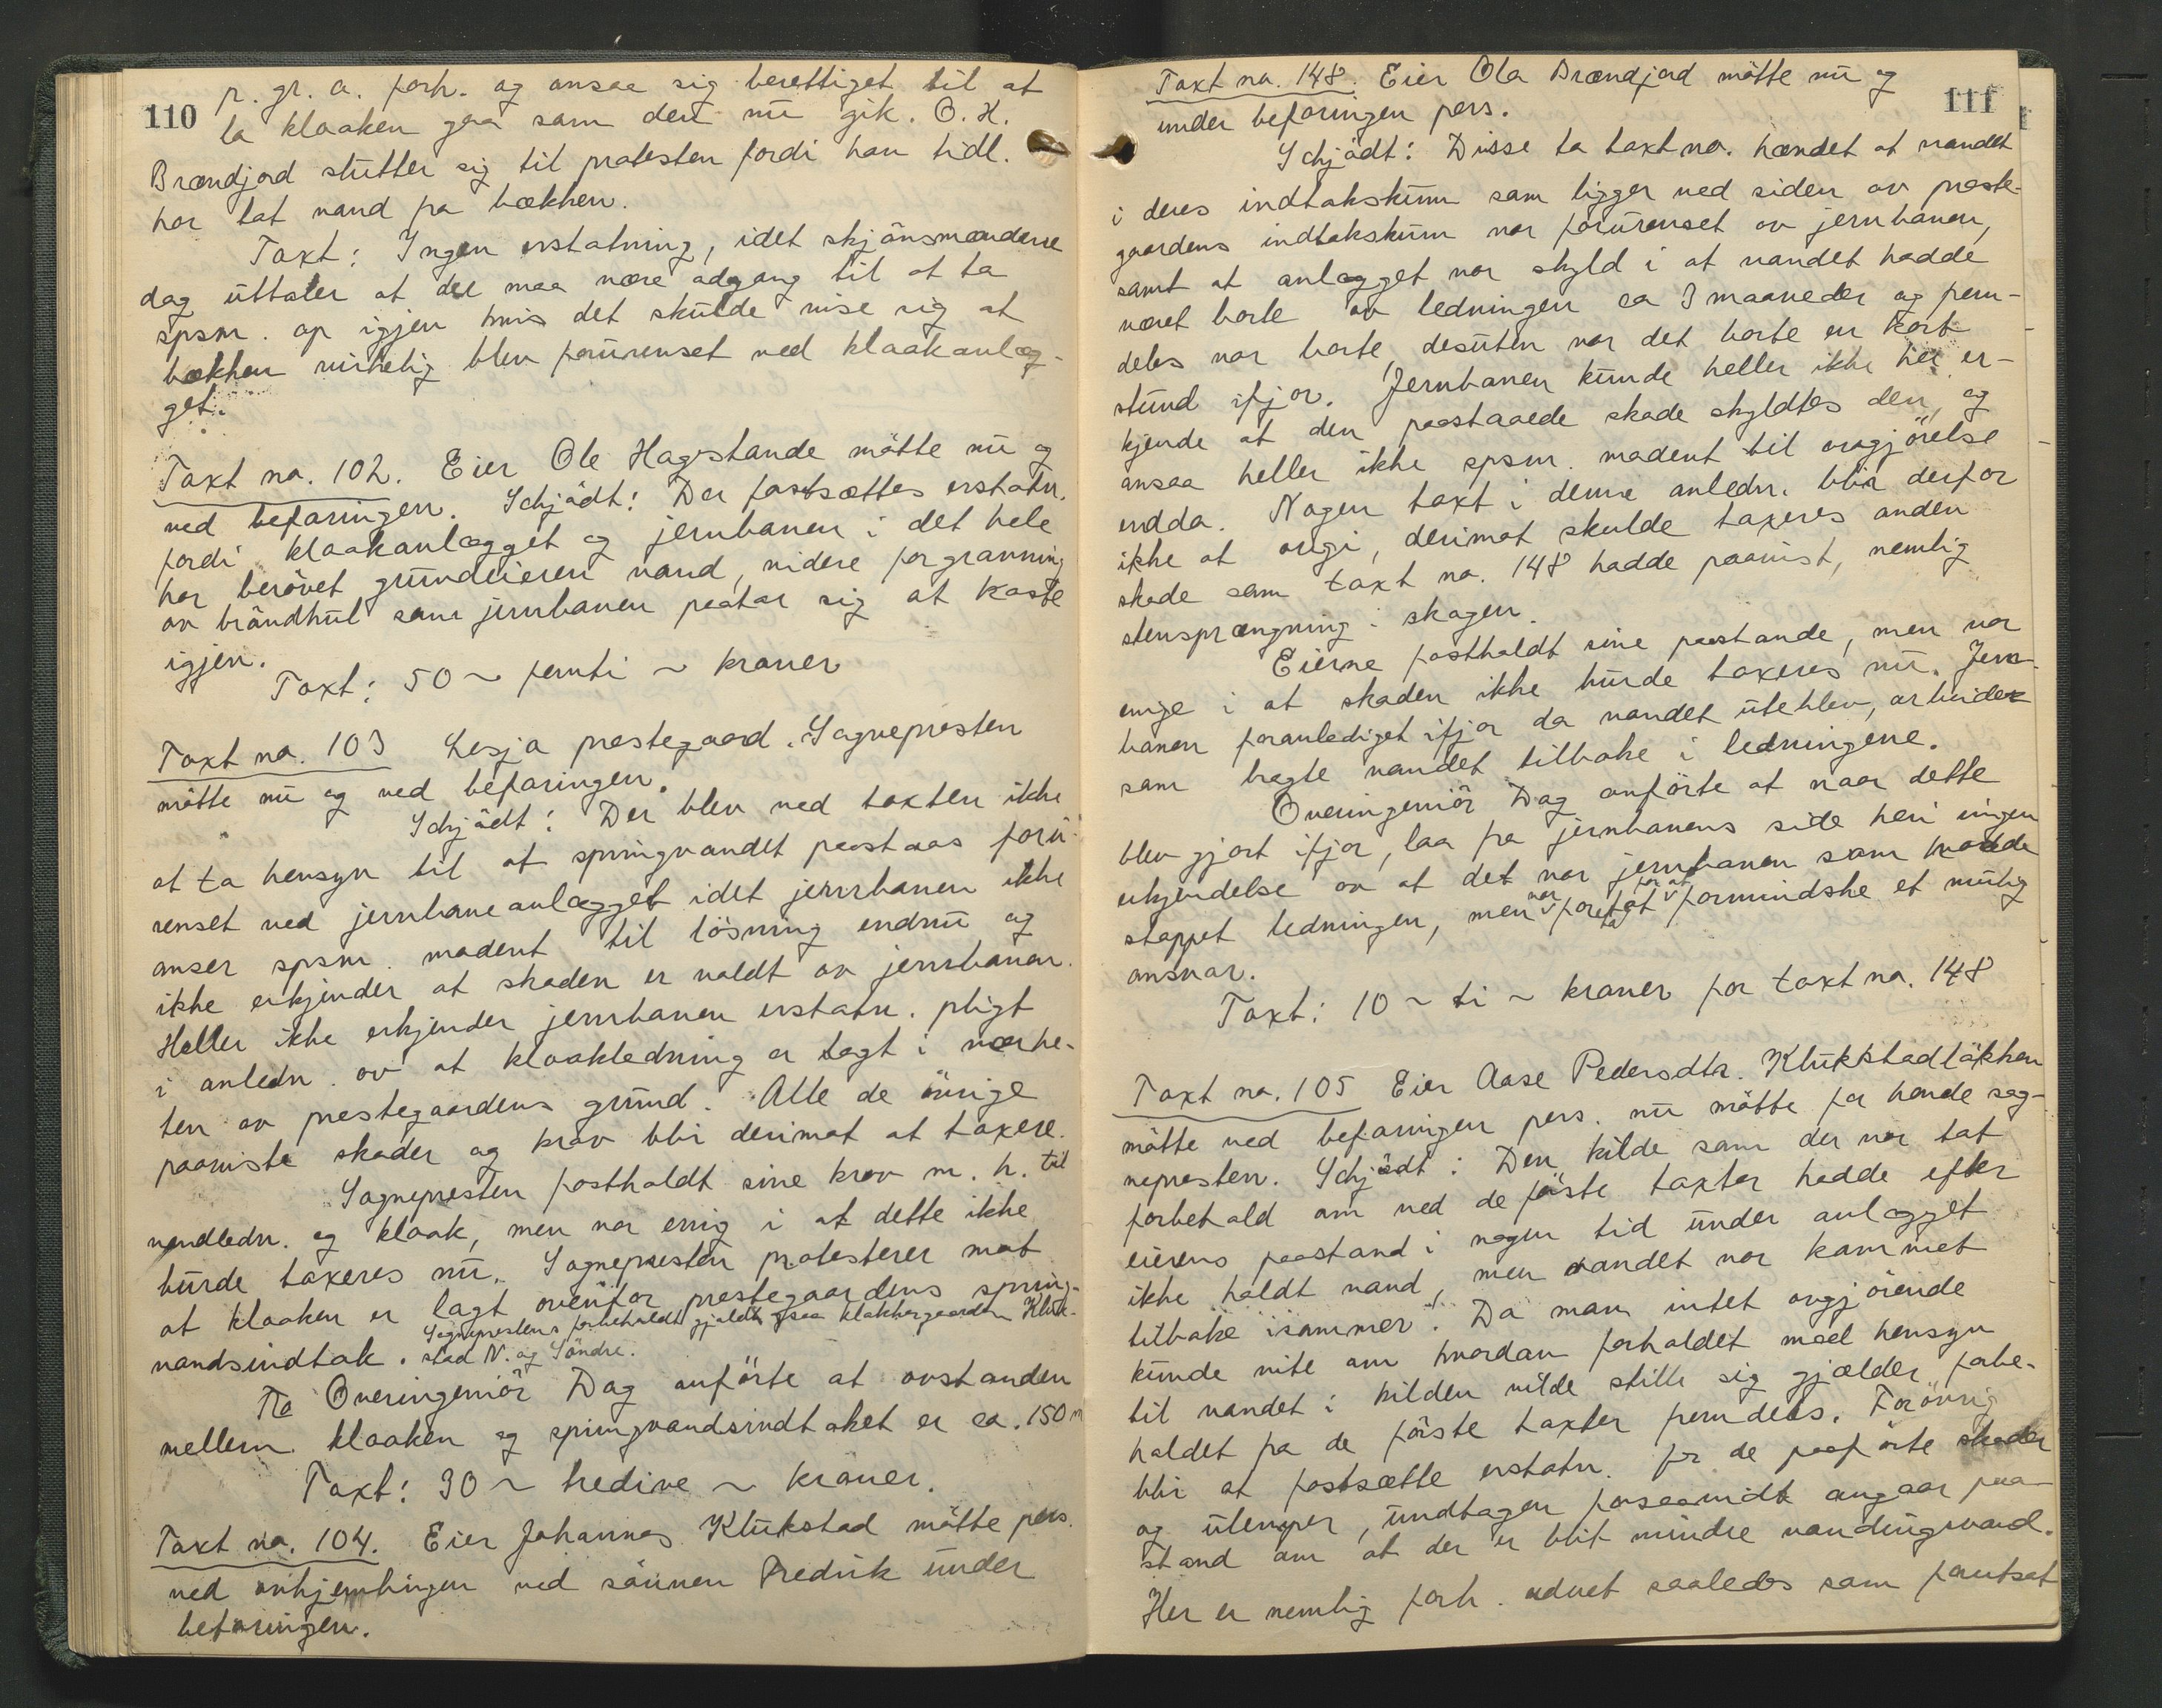 110
p. gr. a. forh. og ansaa sig berettiget til at
la kloaken gaa som den nu gik. O. H.
Brændjord støtter sig til protesten fordi han tidl.
har tat vand fra bækken.
Taxt: Ingen erstatning, idet skjönsmændene
dog uttaler at der maa være adgang til at ta
spsm. op igjen hvis det skulde vise sig at
bækken virkelig blev forurenset ved kloakanlæg-
get.
Taxt no. 102. Eier Ole Hagestande mötte nu og
ved befaringen. Schjödt: Der fastsættes erstatn.
fordi kloakanlægget og jernbanen i det hele
har berövet grundeieren vand, videre for gravning
av bröndhul som jernbanen paatar sig at kaste
igjen.
Taxt: 50 ~ femti ~ kroner
Taxt no. 103 Lesja prestegaard. Sognepresten
mötte nu og ved befaringen.
Schjödt: Der blev ved taxten ikke
at ta hensyn til at springvandet paastaas foru-
renset ved jernbaneanlægget idet jernbanen ikke
anser spsm. modent til lösning endnu og
ikke erkjender at skaden er voldt av jernbanen.
Heller ikke erkjender jernbanen erstatn. pligt
i anledn. av at kloakledning er lagt i nærhe-
ten av prestegaardens grund. Alle de övrige
paaviste skader og krav blir derimot at taxere.
Sognepresten fastholdt sine krav m. h. til
vandledn. og kloak, men var enig i at dette ikke
burde taxeres nu. Sognepresten protesterer mot
at kloaken er lagt ovenfor prestegaardens spring-
vandsindtak. Sogneprestens forbehold gjaldt ogsaa klokkergaarden Kluk-
stad N. og Söndre.
Overingeniör Dag anförte at avstanden
mellem kloaken og springvandsindtaket er ca. 150 m
Taxt: 30 ~ tredive ~ kroner.
Taxt no. 104. Eier Johannes Klukstad mötte pers.
ved avhjemlingen ved sönnen Fredrik under
befaringen.
111
Taxt no. 148. Eier Ola Brændjord mötte nu og
under befaringen pers.
Schjödt: Disse to taxtno. hændet at vandet
i deres indtakskum som ligger ved siden av preste-
gaardens indtakskum var forurenset av jernbanen,
samt at anlægget var skyld i at vandet hadde
været borte av ledningen ca 3 maaneder og frem-
deles var borte, desuten var det borte en kort
stund ifjor. Jernbanen kunde heller ikke her er-
kjende at den paastaaede skade skyldtes den, og
ansaa heller ikke spsm. modent til avgjörelse
endda. Nogen taxt i denne anledn. blir derfor
ikke at avgi, derimot skulde taxeres anden
skade som taxt no. 148 hadde paavist, nemlig
stensprængning i skogen.
Eierne fastholdt sine paastande, men var
enige i at skaden ikke burde taxeres nu. Jern-
banen foranlediget ifjor da vandet uteblev, arbeider
som bragte vandet tilbake i ledningene.
Overingeniör Dag anförte at naar dette
blev gjort ifjor, laa fra jernbanens side heri ingen
erkjendelse av at det var jernbanen som hadde
stoppet ledningen, men var foretat for at formindske et mulig
ansvar.
Taxt: 10 ~ ti ~ kroner for taxt no. 148
Taxt no. 105 Eier Aase Pedersdtr. Klukstadløkken
mötte ved befaringen pers. nu mötte for hende sog-
nepresten. Schjödt: Den kilde som der var tat
forbehold om ved de förste taxter hadde efter
eierens paastand i nogen tid under anlægget
ikke holdt vand, men vandet var kommet
tilbake isommer. Da man intet avgjörende
kunde vite om hvordan forholdet med hensyn
til vandet i kilden vilde stille sig gjælder forbe-
holdet fra de förste taxter fremdeles. Forövrig
blir at fastsætte erstatn. for de paaførte skader
og ulemper, undtagen forsaavidt angaar paa-
stand om at der er blit mindre vandingsvand.
Her er nemlig forh. advet saaledes som forutsat